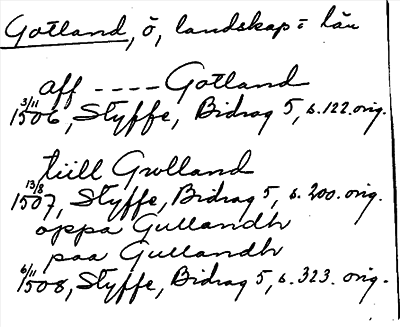 Gotland, ö, landskap = län
aff ---- Gotland
3/11 1506, Styffe, Bidrag 5, s. 122. orig.
tiill Gwlland
13/8 1507, Styffe, Bidrag 5, s. 200. orig.
oppa Gullandh
paa Gullandh
6/11 1508, Styffe, Bidrag 5, s. 323. orig.